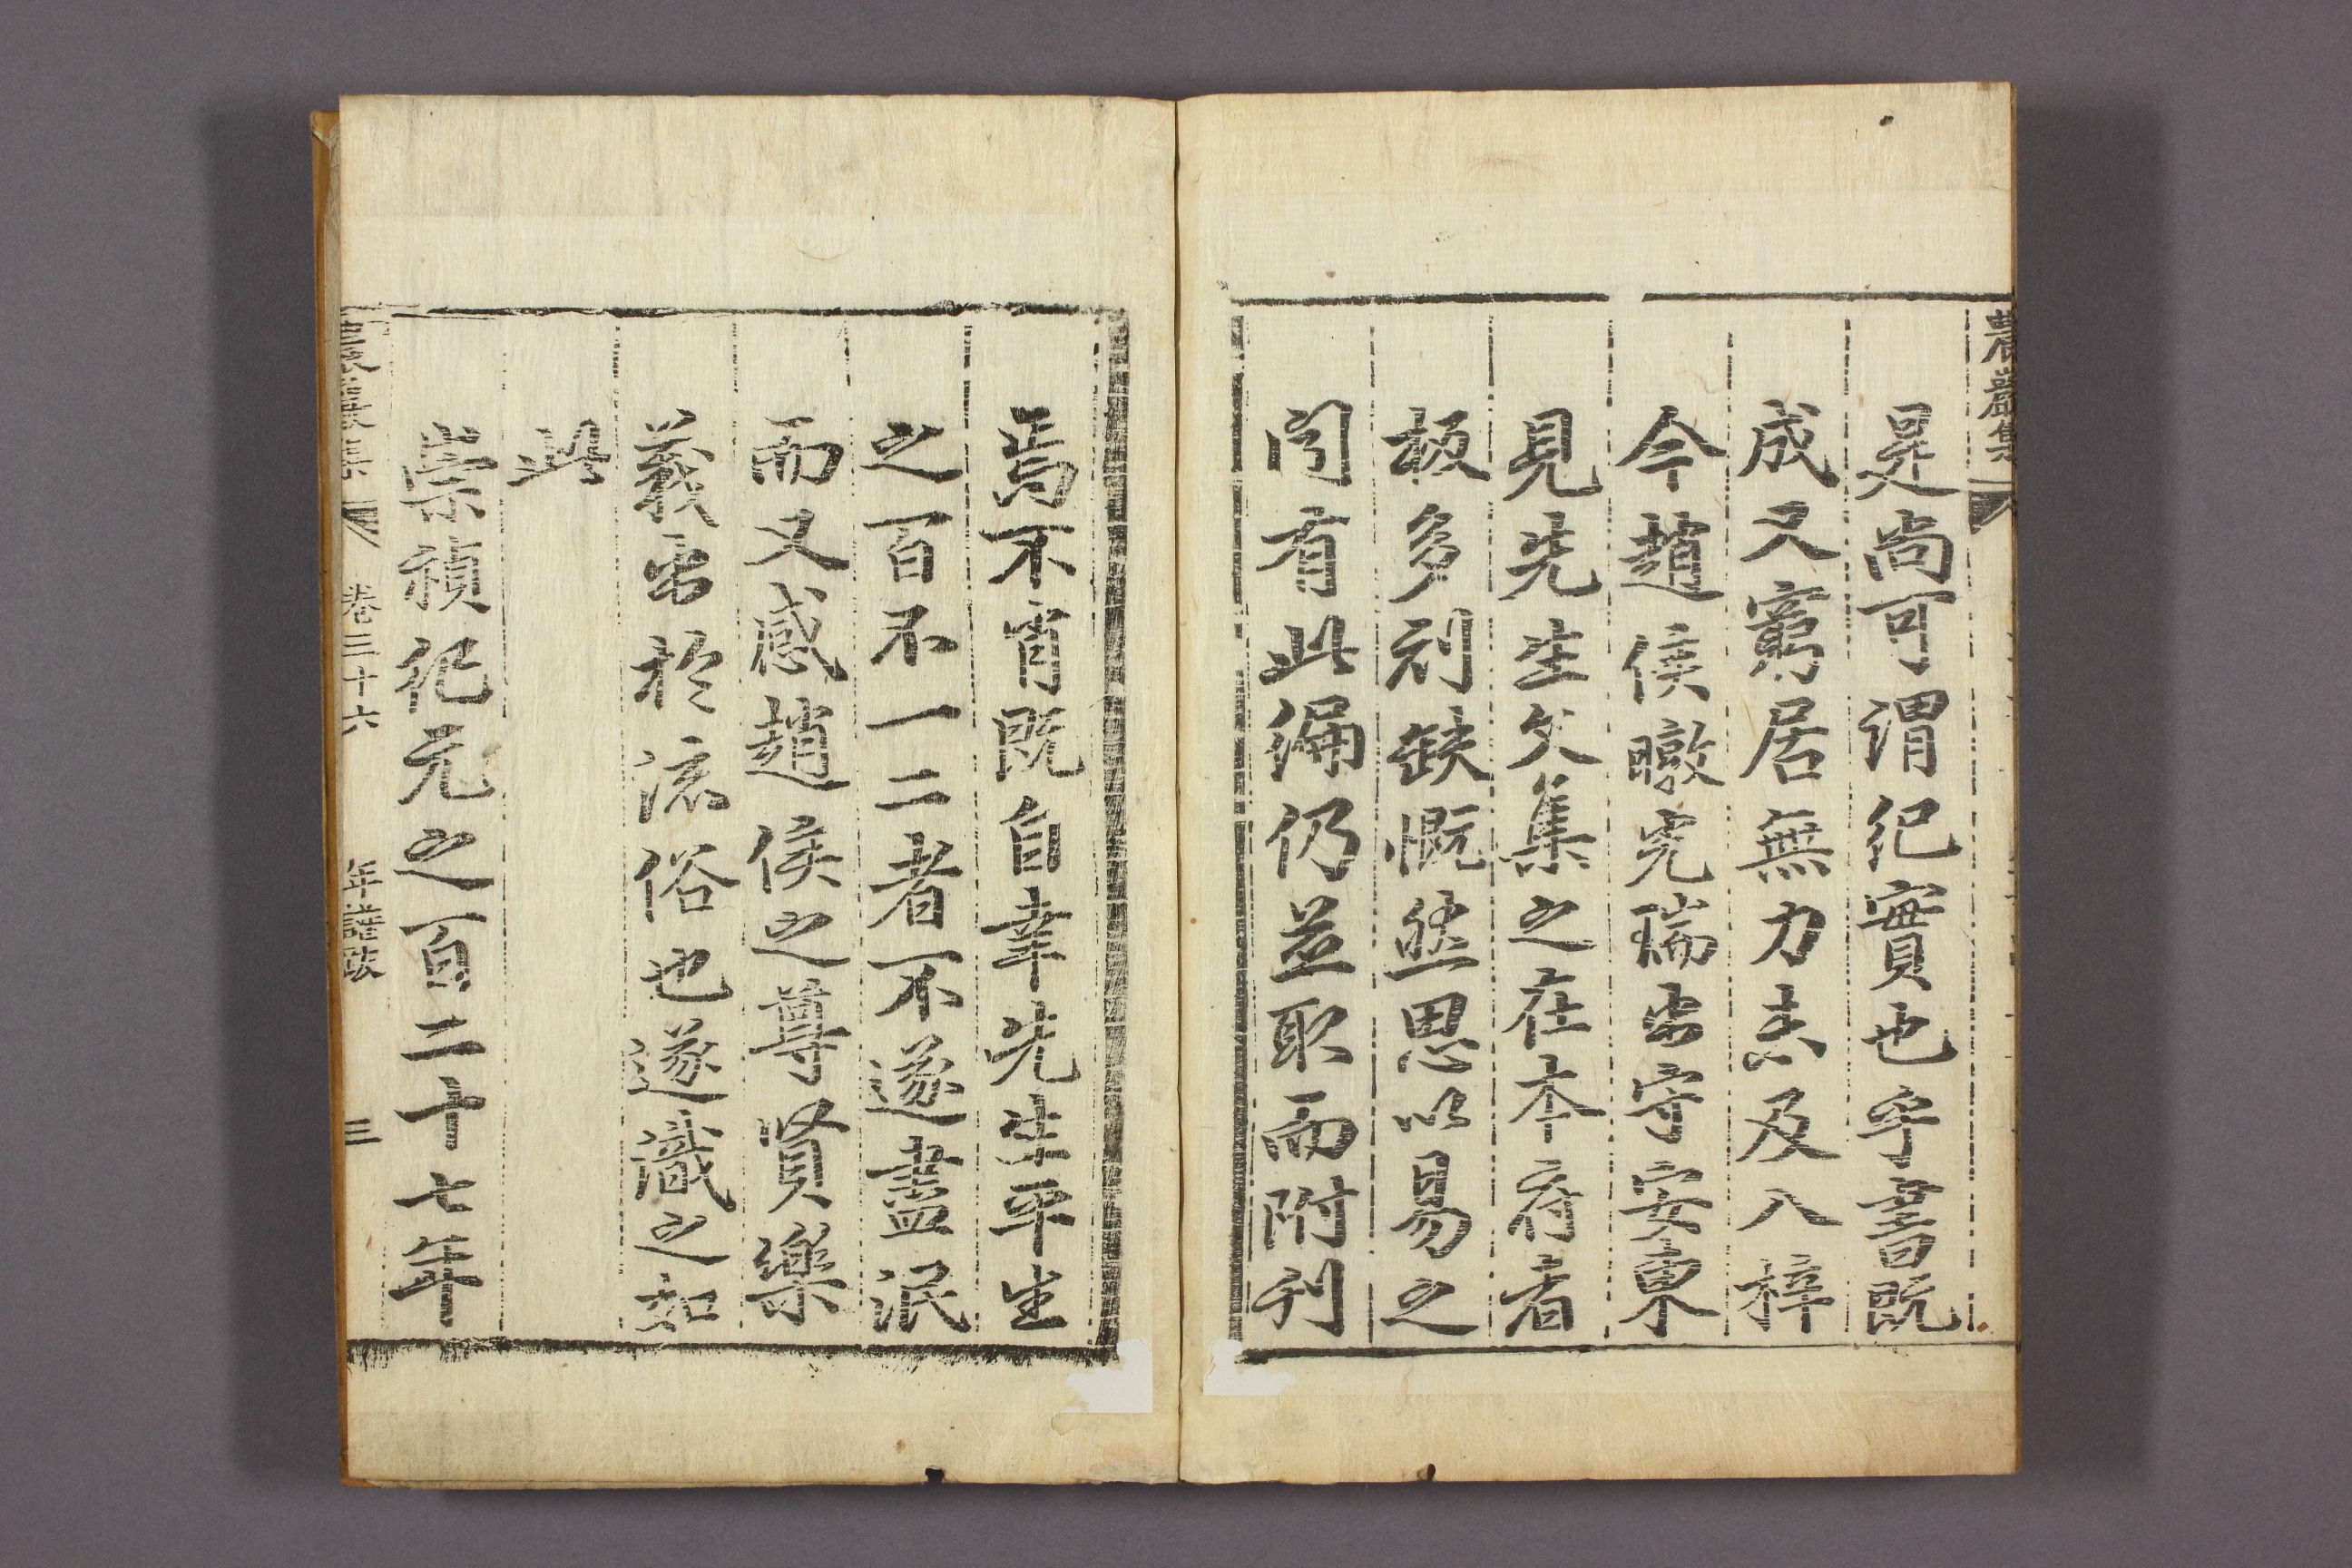 農巖集
是尚可謂紀實也乎書既
成又窮居無力末及入梓
今趙侯暾完瑞出守安東
見先生文集之在本府者
板多刓缺慨然思以易之
聞有此編仍並取而附刊
焉不肖既自幸先生平生
之百不一二者不遂盡泯
而又感趙侯之尊賢樂
義出於流俗也遂識之如
此
崇禎紀元之百二十七年
農巖集 卷三十六 年譜跋 三